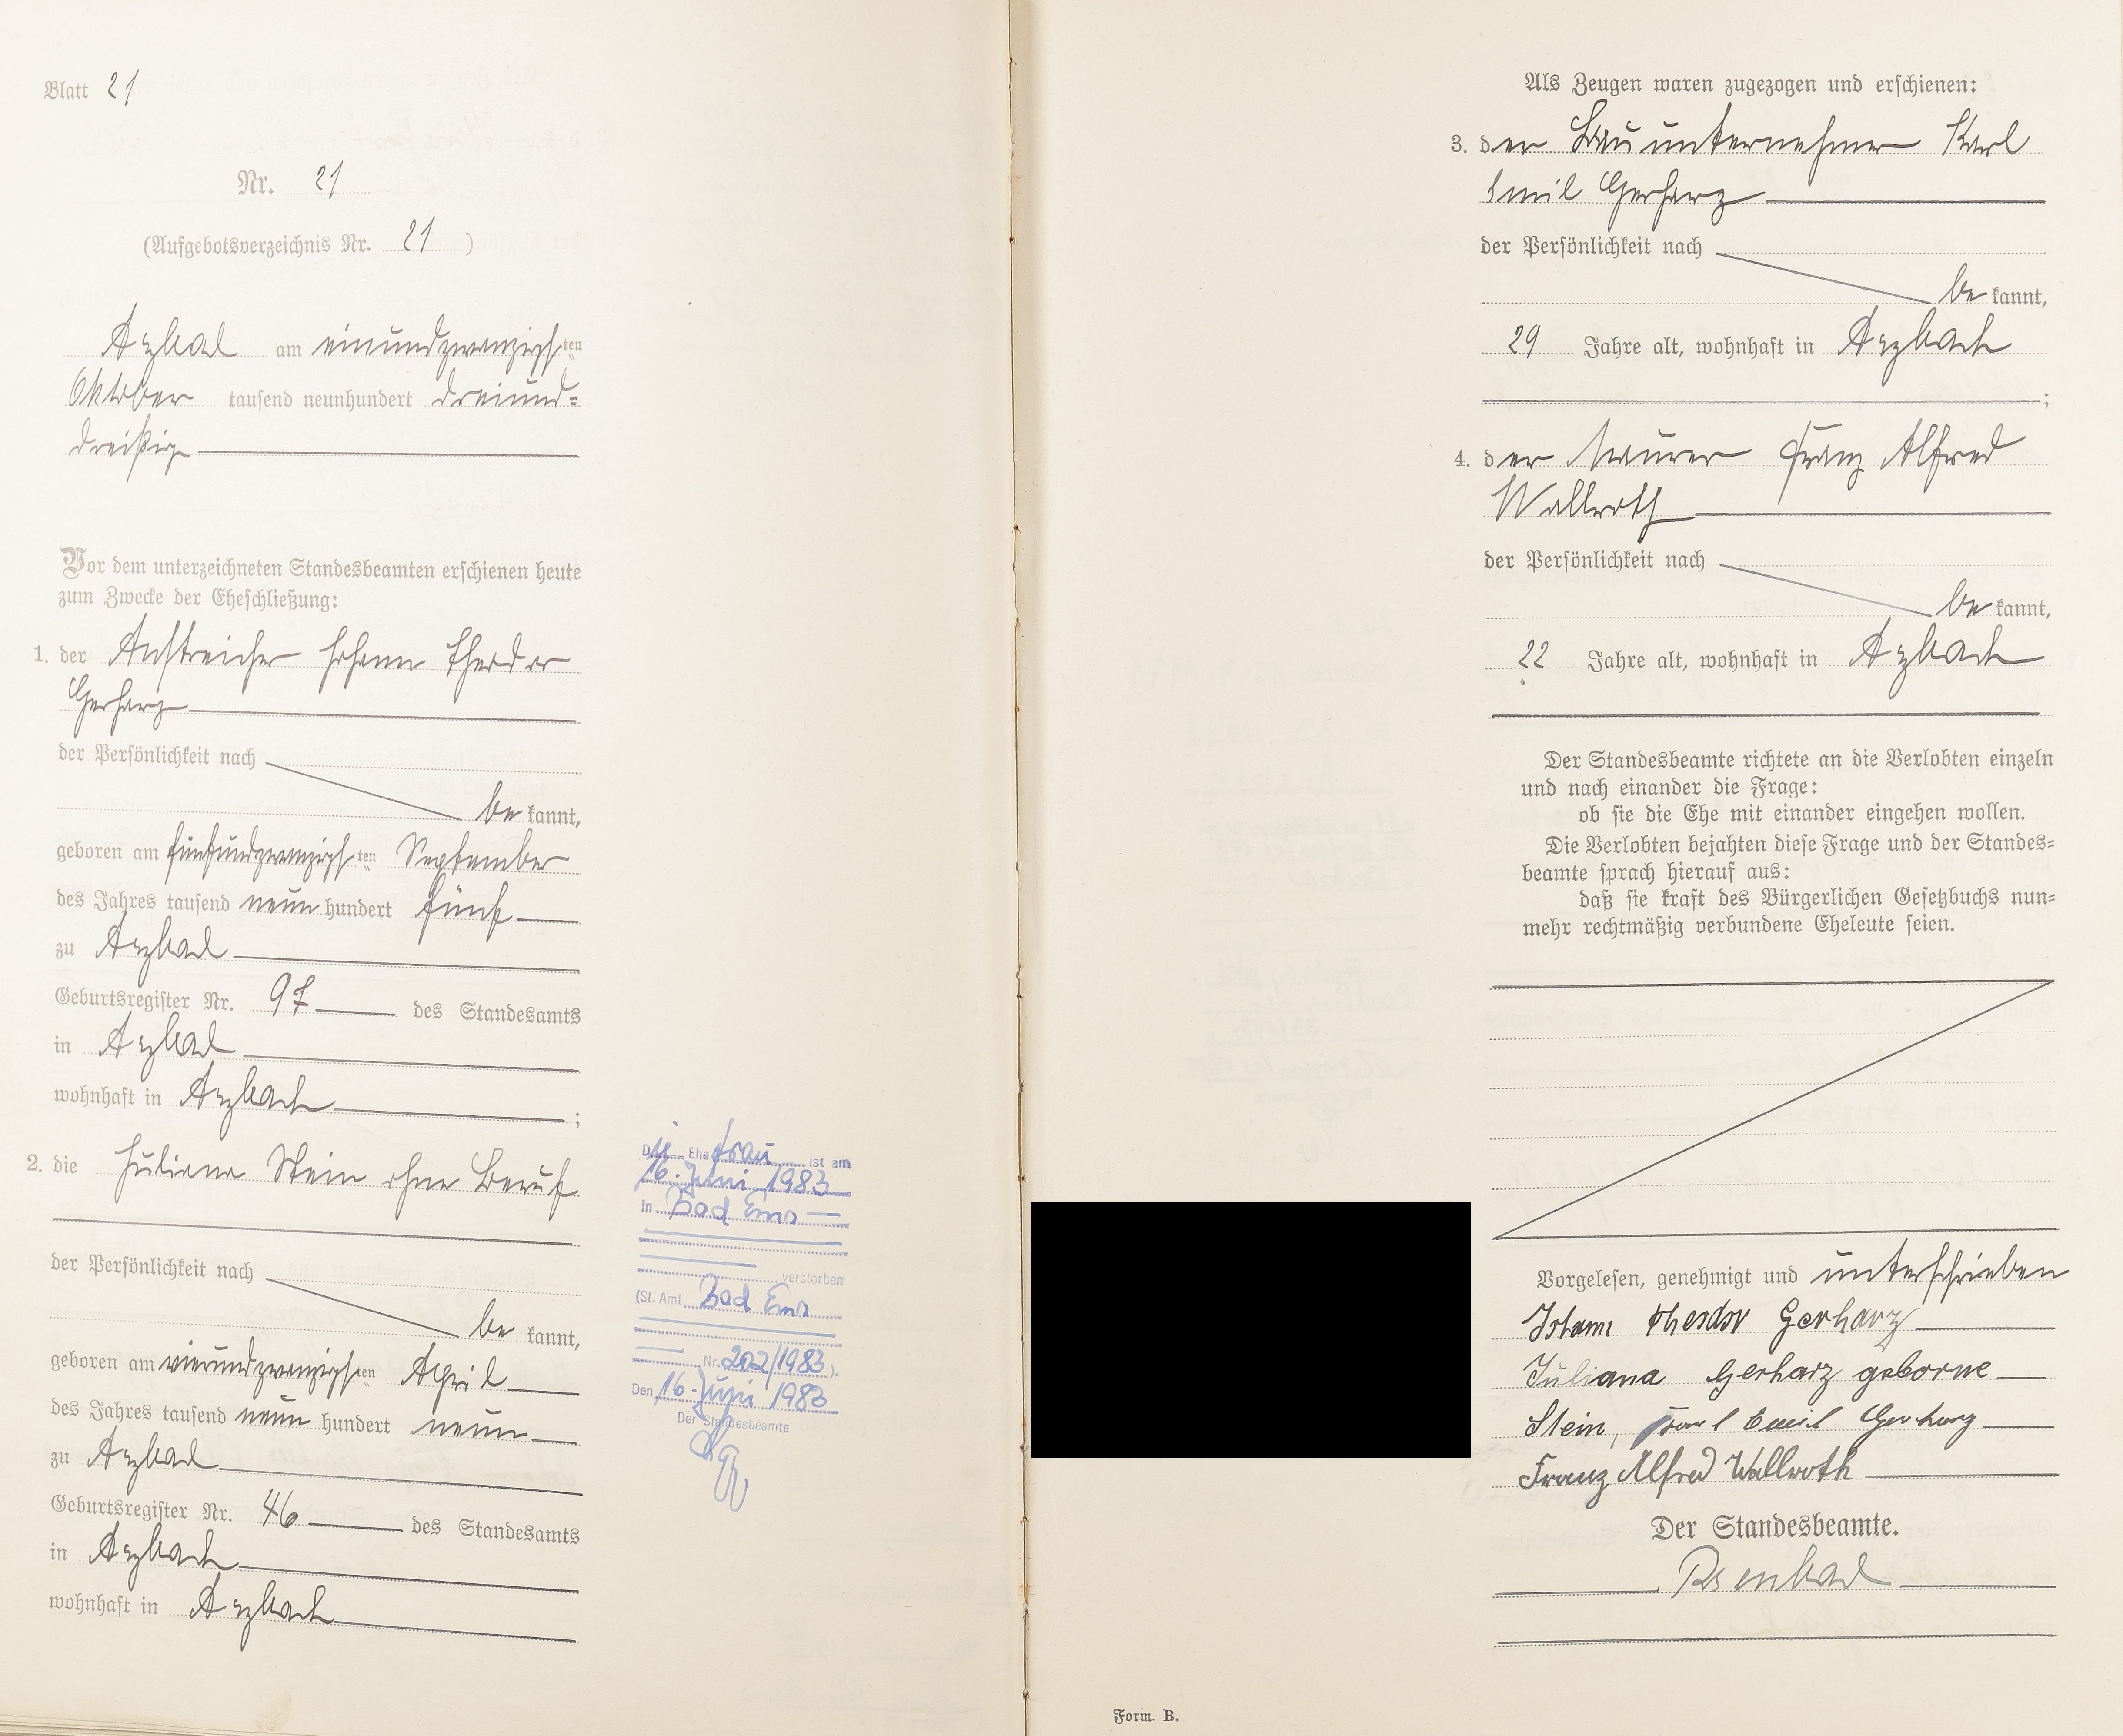 Blatt 21
Nr. 21
(Aufgebotsverzeichnis Nr. 21 )
Arzbach am einundzwanzigsten
Oktober tausend neunhundert dreiund=
dreißig
Vor dem unterzeichneten Standesbeamten erschienen heute
zum Zwecke der Eheschließung:
1. der Anstreicher Johann Theodor
Gerharz
der Persönlichkeit nach
be kannt,
geboren am fünfundzwanzigsten September
des Jahres tausend neun hundert fünf
zu Arzbach
Geburtsregister Nr. 97 des Standesamts
in Arzbach
wohnhaft in Arzbach ;
2. die Juliana Stein ohne Beruf
der Persönlichkeit nach
be kannt,
geboren am vierundzwanzigsten April
des Jahres tausend neun hundert neun
zu Arzbach
Geburtsregister Nr. 46 des Standesamts
in Arzbach
wohnhaft in Arzbach
Die Ehefrau ist am
16. Juni 1983
in Bad Ems
verstorben
(St. Amt Bad Ems
Nr. 202/1983 ).
Den 16. Juni 1983
Der Standesbeamte
Als Zeugen waren zugezogen und erschienen:
3. der Bauunternehmer Karl
Emil Gerharz
der Persönlichkeit nach
be kannt,
29 Jahre alt, wohnhaft in Arzbach
;
4. der Maurer Franz Alfred
Wallroth
der Persönlichkeit nach
be kannt,
22 Jahre alt, wohnhaft in Arzbach
Der Standesbeamte richtete an die Verlobten einzeln
und nach einander die Frage:
ob sie die Ehe mit einander eingehen wollen.
Die Verlobten bejahten diese Frage und der Standes=
beamte sprach hierauf aus:
daß sie kraft des Bürgerlichen Gesetzbuchs nun=
mehr rechtmäßig verbundene Eheleute seien.
Vorgelesen, genehmigt und unterschrieben
Johann Theodor Gerharz
Juliana Gerharz geborne
Stein, Karl Emil Gerharz
Franz Alfred Wallroth
Der Standesbeamte.
Form. B.